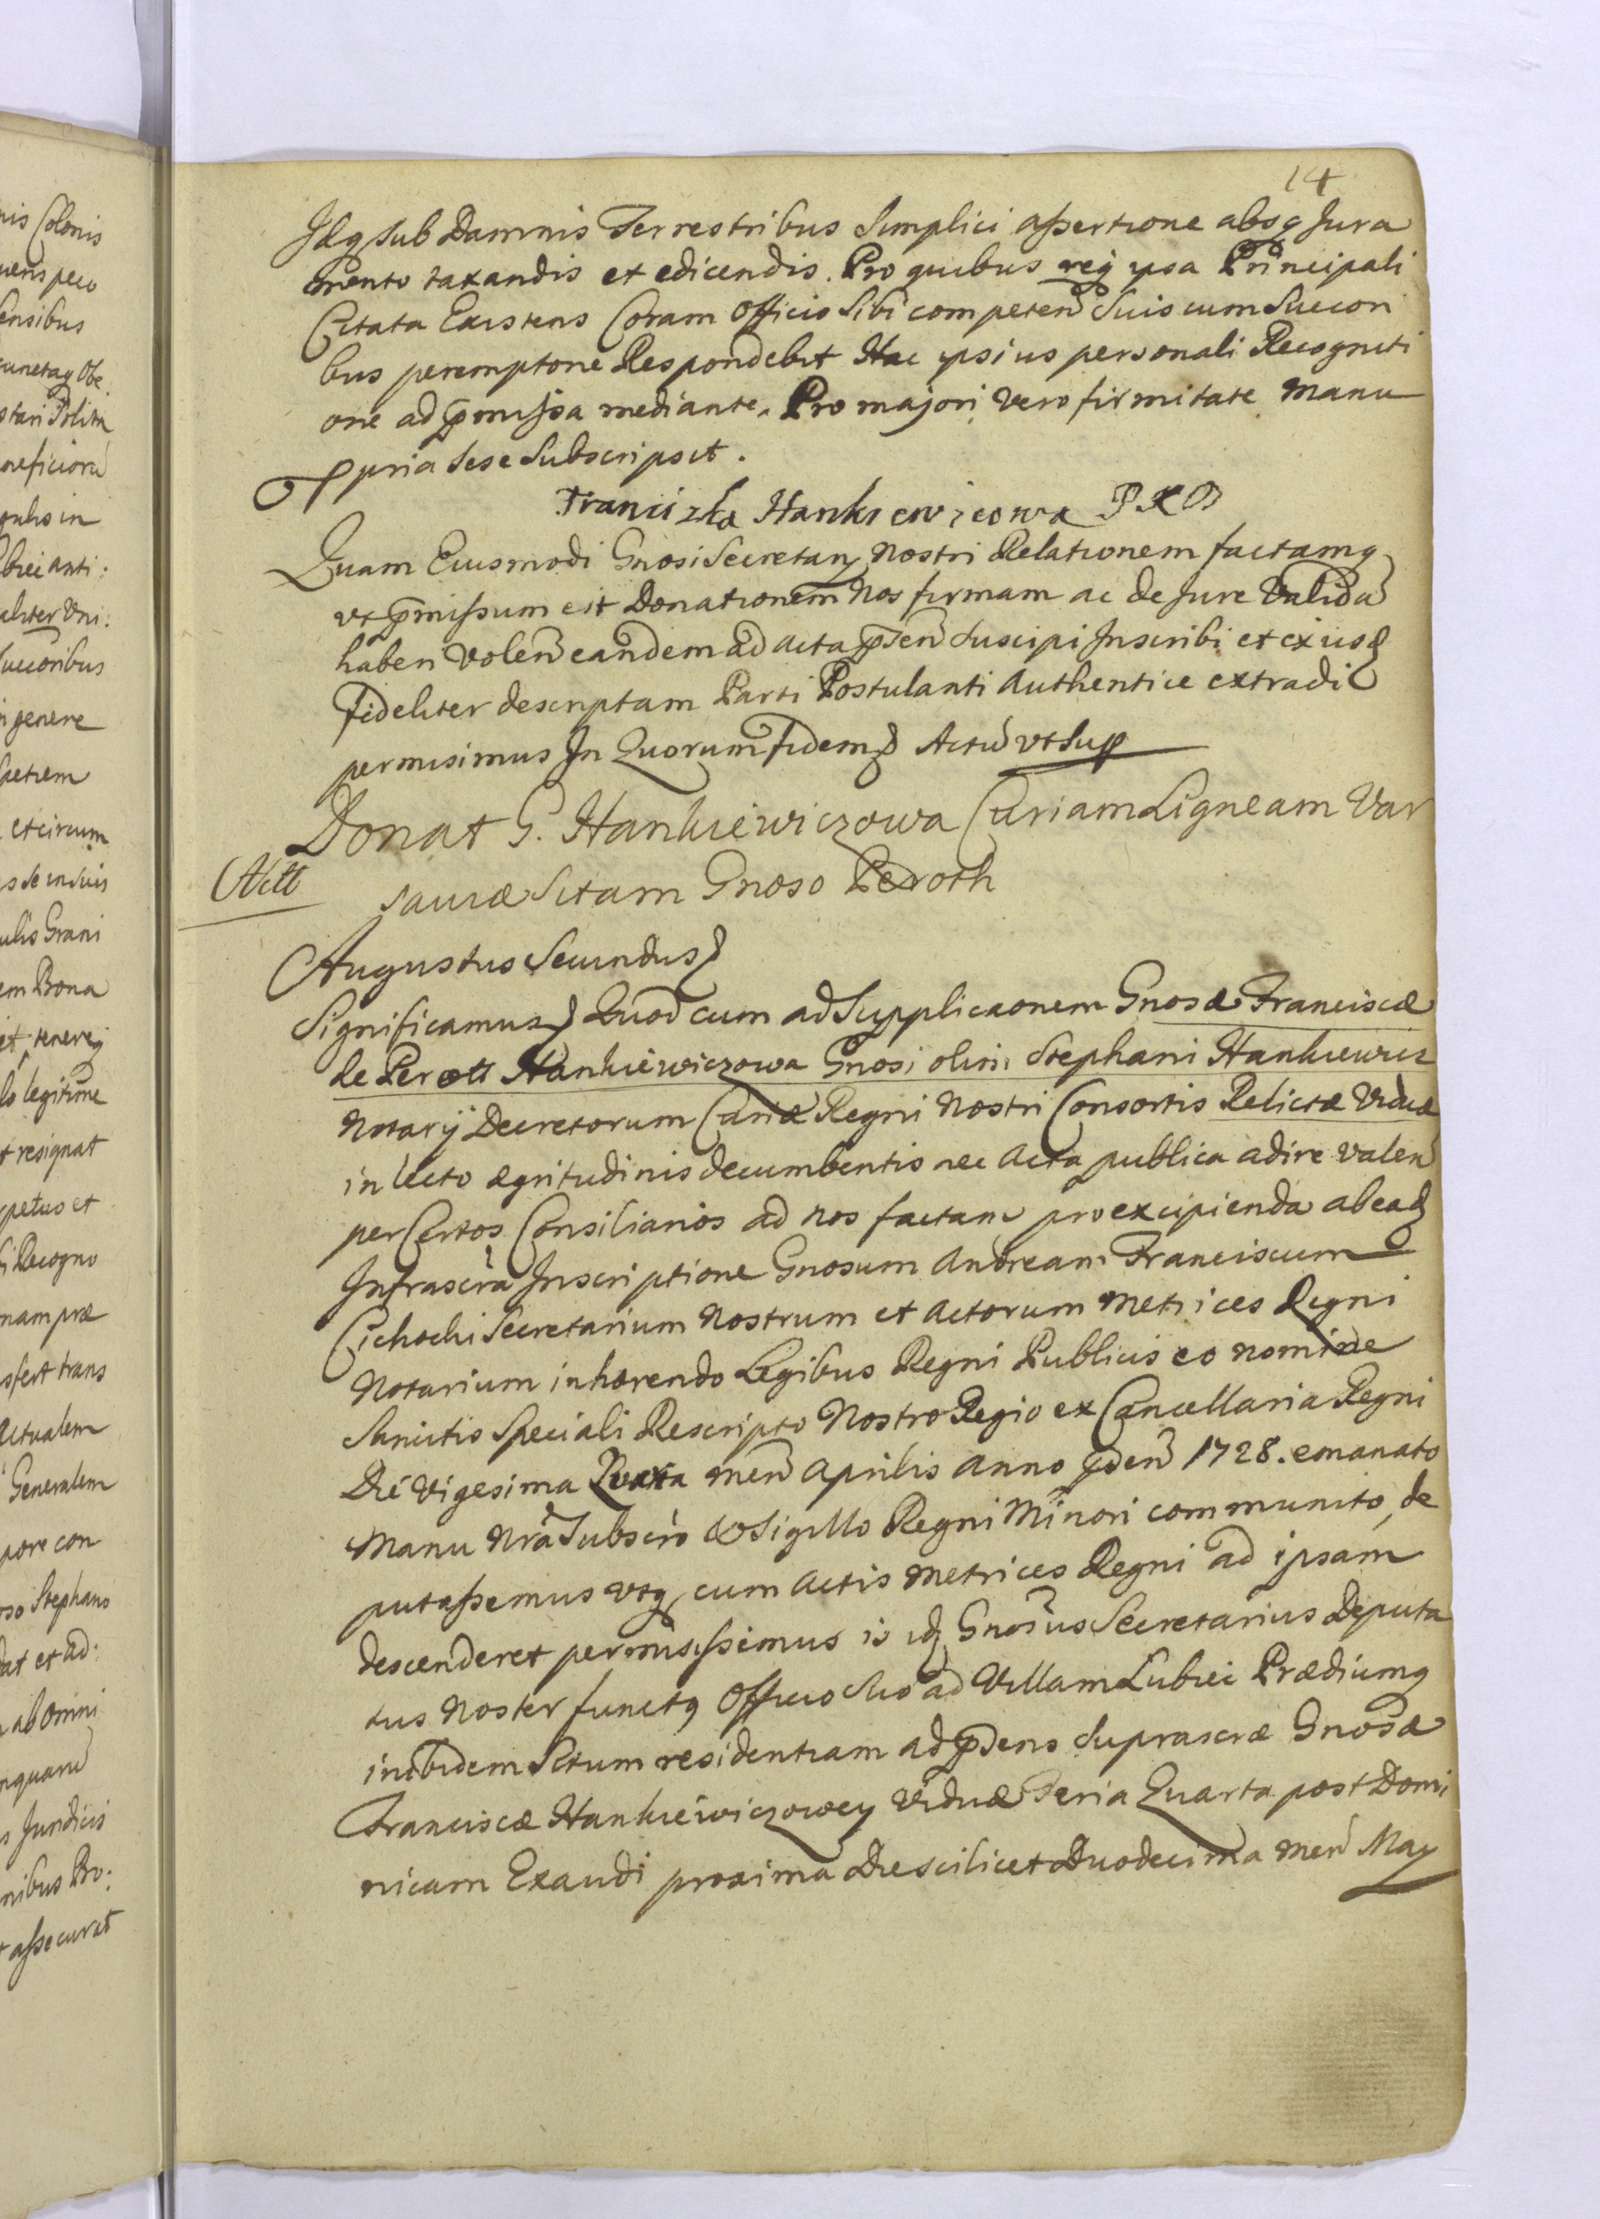 14
Idq sub Damnis Terrestribus simplici assertione absq Jura
mento taxandis et edicendis. Pro quibus req ipsa Principali
Citata Existens Coram Officio sibi competen suis cum succori
bus peremptorie Respondebit Hac ipsius personali Recogniti
one ad pmissa mediante. Pro majori vero firmitate manu
ppria sese subscripsit.
Franciszka Hankiewiczowa
Quam Eiusmodi Gnosi Secretarij nostri Relationem factamq
ut pmissum est Donationem Nos firmam ac de Jure Valida
haberi volen eandem ad acta psen suscipi Inscribi et exiusd
fideliter descriptam Parti Postulanti Authentice extradi
permisimus In Quorum fidem Actu ut sup
Donat G. Hankiewiczowa Curiam Ligneam Var
saviæ sitam Gnoso Peroth
Augustus Secundus
Significamus Quod cum ad Supplicaonem Gnosæ Franciscæ
de Perott Hankiewiczowa Gnosi olim Stephani Hankiewicz
Notarij Decretorum Cariæ Regni Nostri Consortis Relictæ Viduæ
in lecto ægritudinis decumbentis nec acta publica adire valen
per Certos Consiliarios ad nos factam pro excipienda ab ead
Infrascra Inscriptione Gnosum Andream Franciscum
Cichocki Secretarium Nostrum et Actorum Metrices Regni
Notarium inhærendo Legibus Regni Publicis eo nomine
Sancitis speciali Rescripto Nostro Regio ex Cancellaria Regni
Die Vigesima Quarta Men Aprilis Anno pden 1728. emanato
Manu Nra Subscro & Sigillo Regni Minori communito, de
putassemus utq cum Actis Metrices Regni ad ipsam
descenderet permisissemus is idq Gnosus Secretarius Deputa
tus Noster functq Officio suo ad Villam Lubiei Prædiumq
inibidem situm residentiam ad pdens suprascræ Gnosæ
Franciscæ Hankiewiczowey Viduæ Feria Quarta post Domi
nicam Exaudi proxima die scilicet Duodecima men May